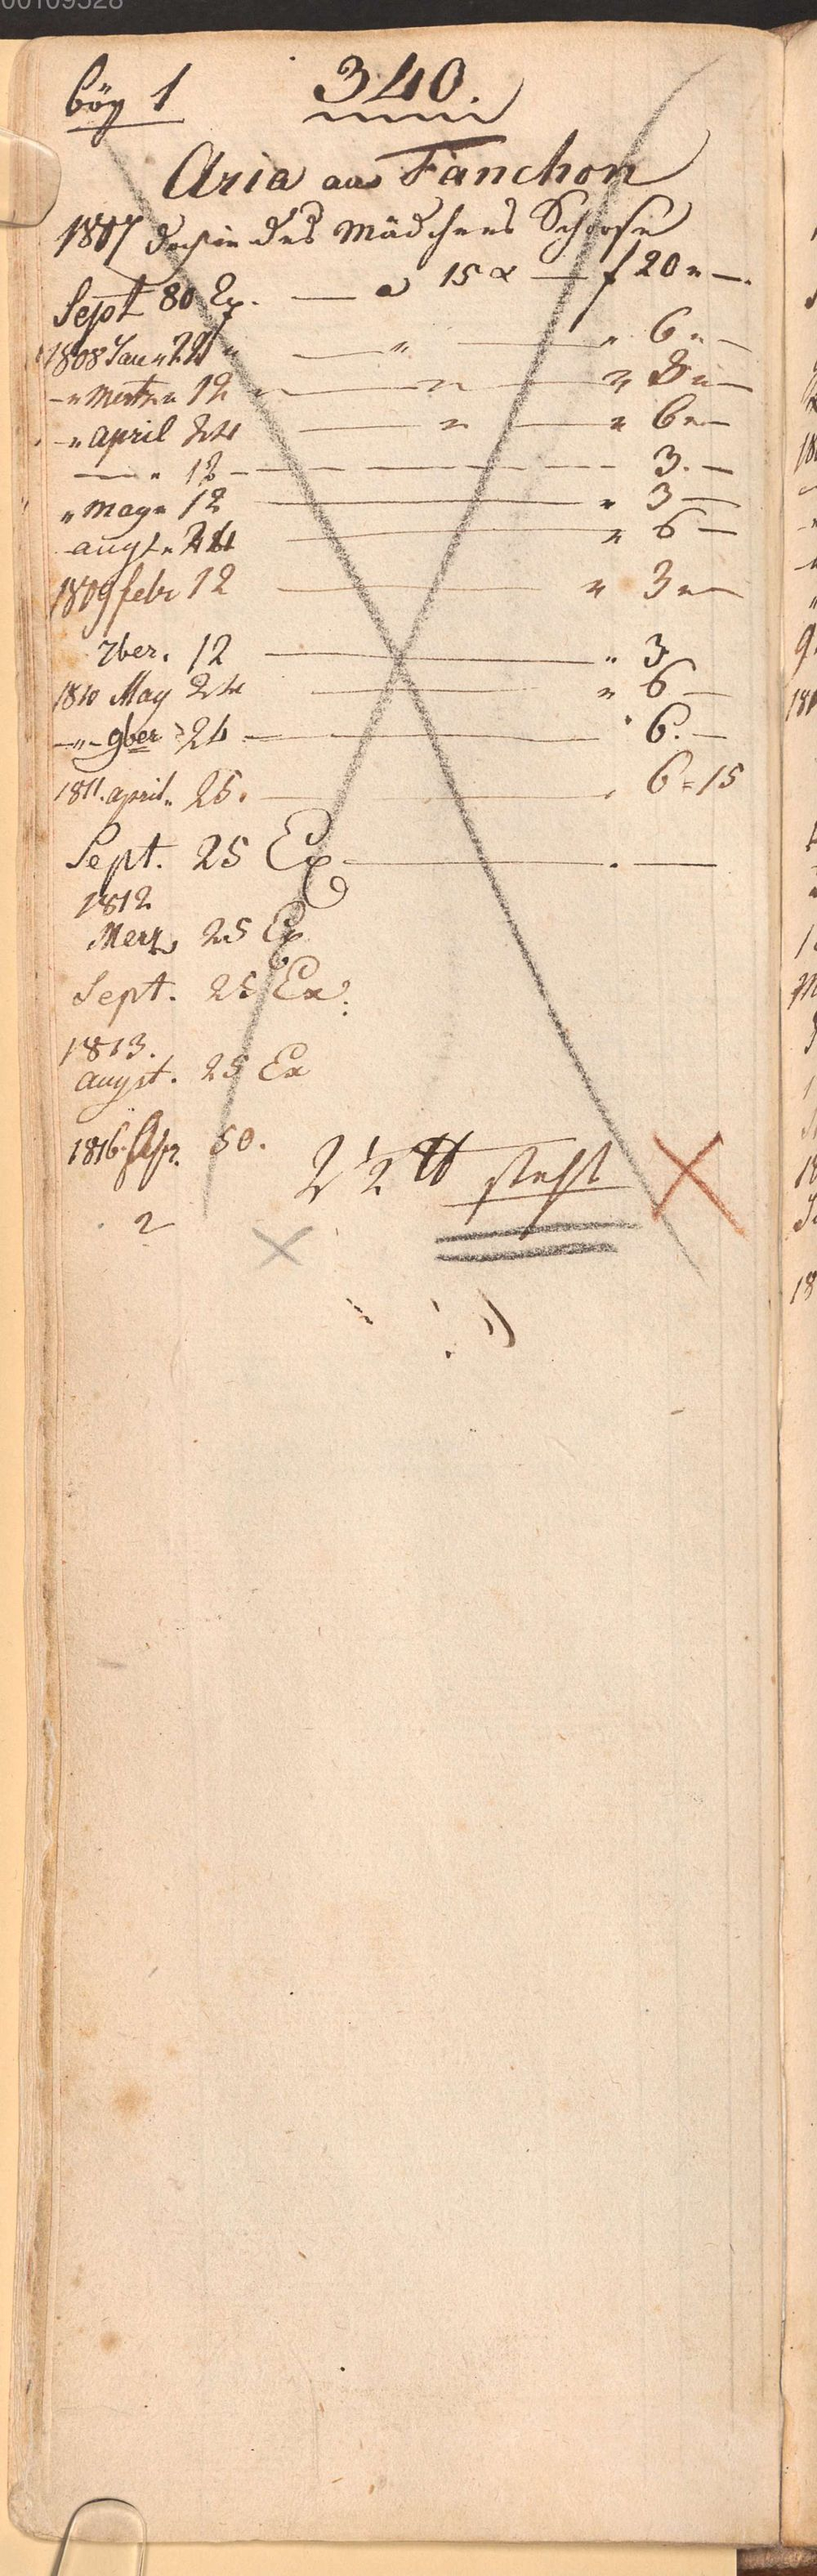 00109528
bög 1 340.
Aria aus Fanchon
1807 doch in des Mädchens Schoose
Sept 80 Ex. — a 15 x — f 20 " —.
1808 Jan " 24 " — " — " 6 " —
— " Mertz " 12 — " — " 3 " —
— " april 24 — " — " 6 " —
— " 12 — 3. —
" May " 12 — " 3 —
augt. " 24 — " 6 —
1809 febr 12 — " 3 " —
7ber. 12 — " 3
1810 May 24 — " 6 —
— " — 9ber 24 — " 6. —
1811. april. 25. — 6 = 15
Sept. 25 Ex — . —
1812
Merz 25 Ex
Sept. 25 Ex.
1813.
augst. 25 Ex
1816. Apr. 50. 2 ½ ℔ steht
2